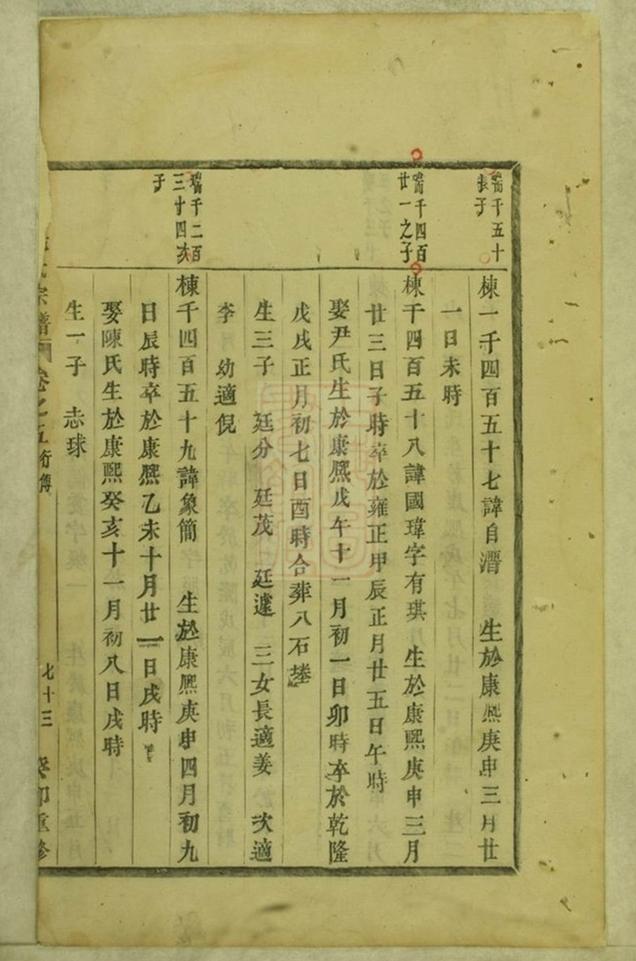 瑞千五十
長子
棟一千四百五十七諱自潛 生於康熙庚申三月廿
一日未時
瑞千四百
廿一之子
棟千四百五十八諱國瑋字有琪 生於康熙庚申三月
廿三日子時卒於雍正甲辰正月廿五日午時
娶尹氏生於康熙戊午十一月初一日卯時卒於乾隆
戊戌正月初七日酉時合葬八石塋
生三子 廷分 廷茂 廷遽 三女長適姜 次適
李 幼適倪
瑞千二百
三十四次
子
棟千四百五十九諱象簡 生於康熙庚申四月初九
日辰時卒於康熙乙未十月廿一日戌時
娶陳氏生於康熙癸亥十一月初八日戌時
生一子 志球
氏宗譜 卷之五行傳 七十三 癸卯重修